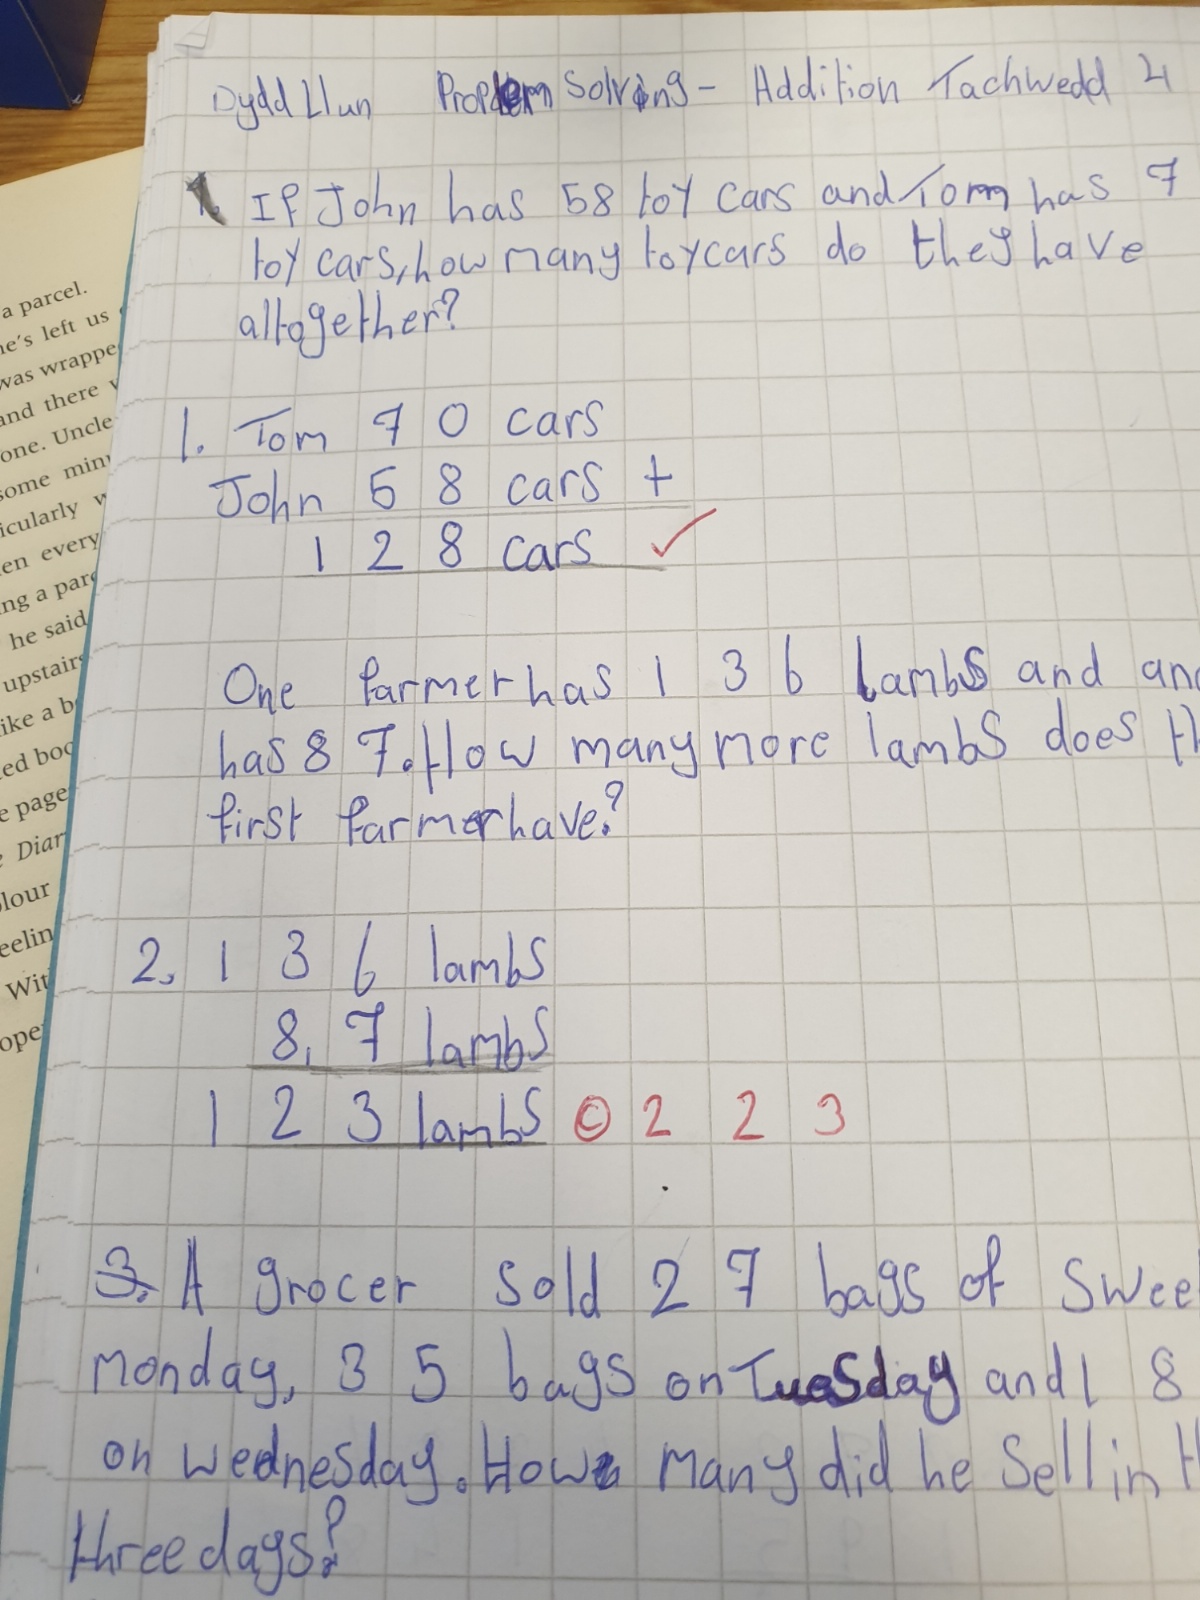 a parcel.
he's left us
was wrappe
and there
one. Uncle
some min
icularly
en every
ng a par
he said
upstairs
ike a b
ed boo
e page
Diar
lour
eelin
Wit
ope
Dydd Llun Problem Solving - Addition Tachwedd 4
1. If John has 58 toy cars and Tom has 7
toy cars, how many toy cars do they have
altogether?
1. Tom 7 0 cars
John 5 8 cars +
1 2 8 cars ✓
One farmer has 1 3 6 lambs and an
has 8 7. How many more lambs does th
first farmer have?
2. 1 3 6 lambs
8, 7 lambs
1 2 3 lambs © 2 2 3
3. A grocer sold 2 7 bags of swee
monday, 3 5 bags on Tuesday and 1 8
on wednesday. How many did he sell in t
three days?